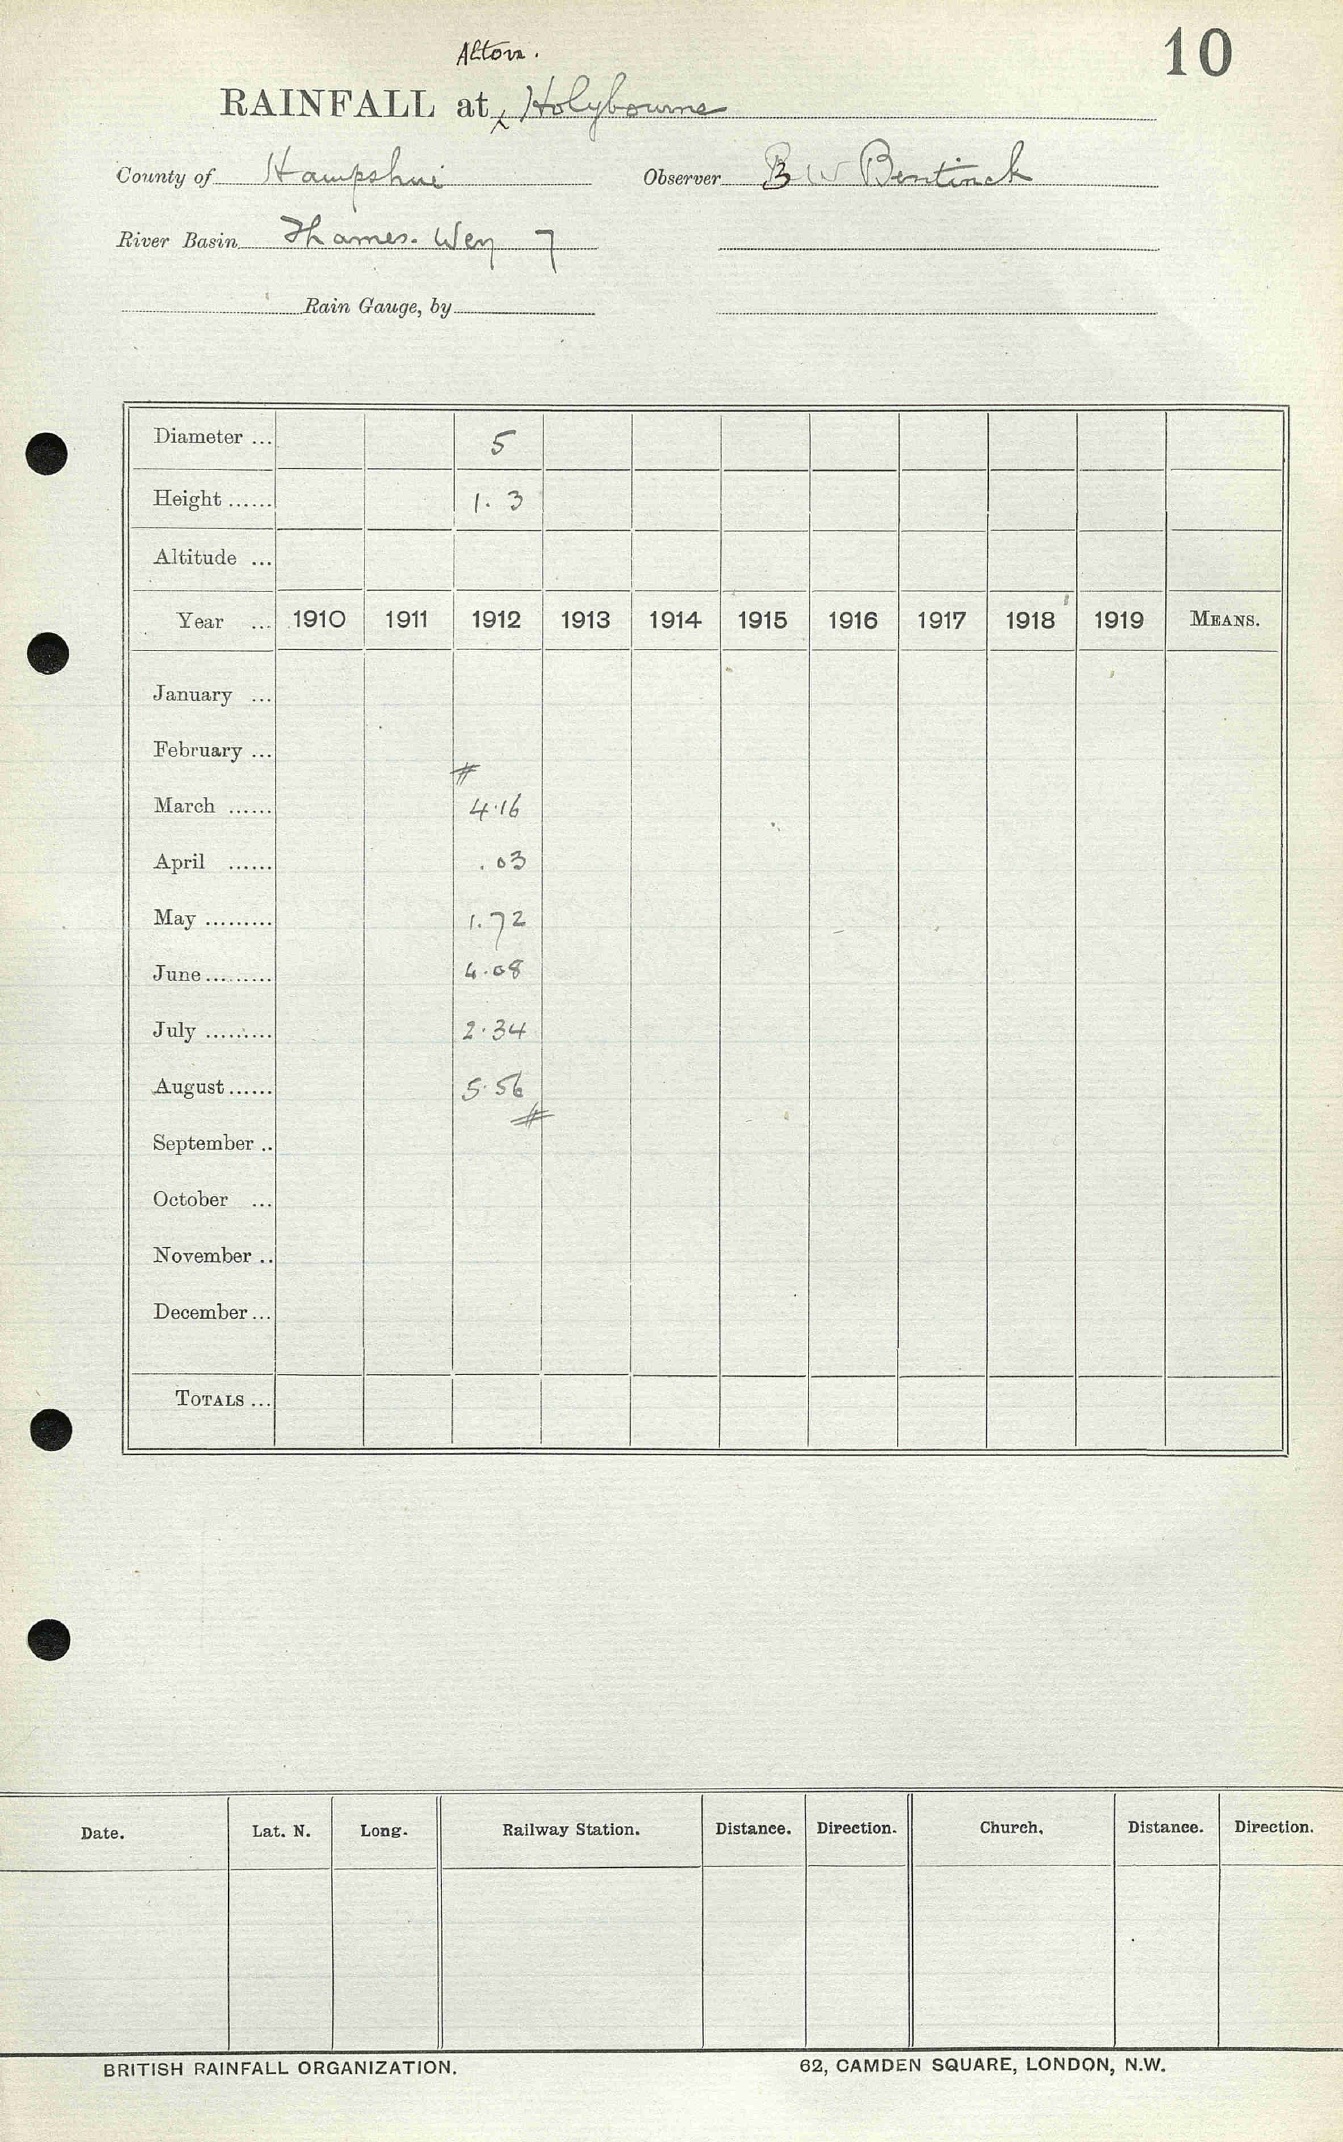 10
Alton.
RAINFALL at Holybourne
County of Hampshire Observer B W Bentinck
River Basin Thames. Wey 7
Rain Gauge, by
Diameter ... 5
Height ...... 1.3
Altitude ...
Year ... 1910 1911 1912 1913 1914 1915 1916 1917 1918 1919 MEANS.
January ...
February ...
#
March ...... 4.16
April ...... .03
May ......... 1.72
June ......... 4.08
July ......... 2.34
August ...... 5.56
#
September ..
October ...
November ..
December ...
TOTALS ...
Date. Lat. N. Long. Railway Station. Distance. Direction. Church. Distance. Direction.
BRITISH RAINFALL ORGANIZATION. 62, CAMDEN SQUARE, LONDON, N.W.